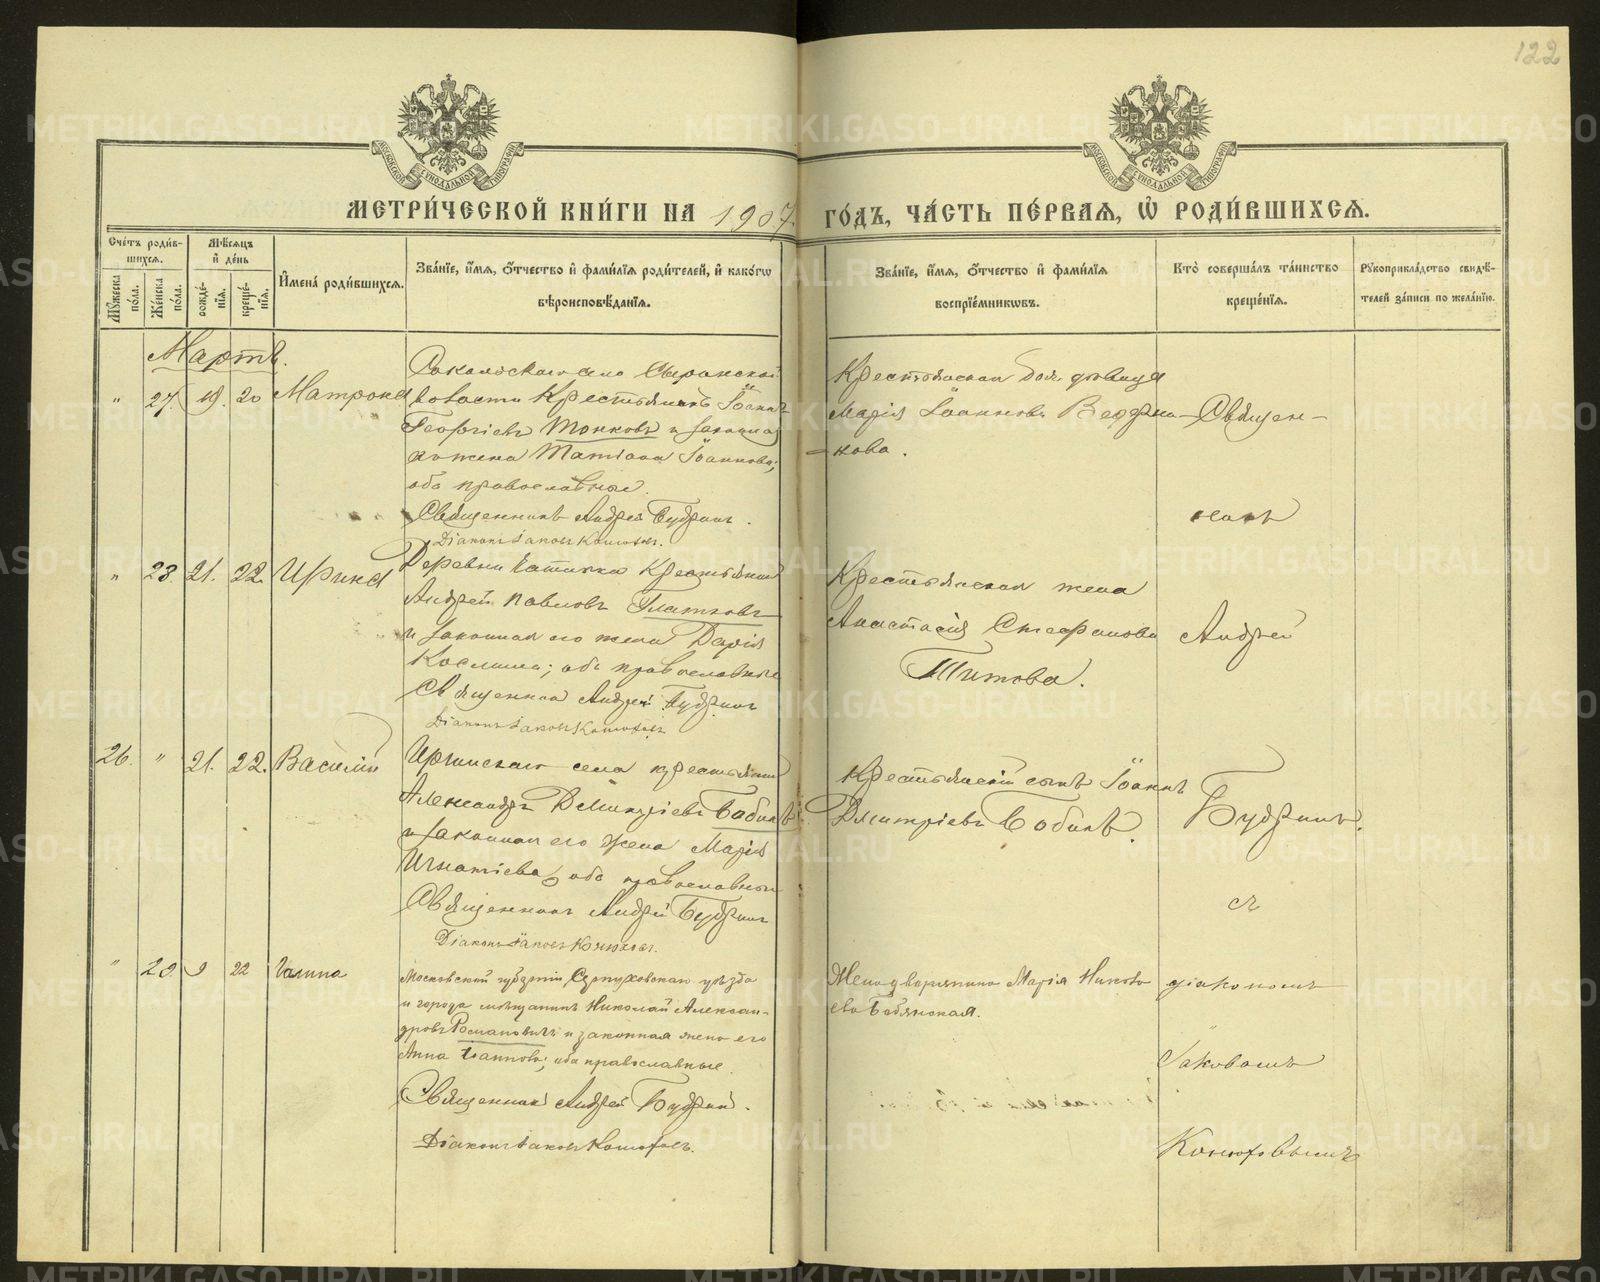 122
МОСКОВСКОЙ СѴНОДАЛЬНОЙ ТИПОГРАФІИ
МОСКОВСКОЙ СѴНОДАЛЬНОЙ ТИПОГРАФІИ
МЕТРИ́ЧЕСКОЙ КНИ́ГИ НА 1907 ГО́ДЪ, ЧА́СТЬ ПЕ́РВАѦ, Ѡ҆ РОДИ́ВШИХСѦ.
Сче́тъ роди́в-
шихсѧ.
Мꙋ́жеска по́ла.
Же́нска по́ла.
Мѣ́сѧцъ
и҆ де́нь
рожде́нїѧ.
креще́нїѧ.
И҆мена̀ роди́вшихсѧ.
Зва́нїе, и҆́мѧ, ѻ҆́тчество и҆ фами́лїѧ роди́телей, и҆ како́гѡ
вѣроисповѣ́данїѧ.
Зва́нїе, и҆́мѧ, ѻ҆́тчество и҆ фами́лїѧ
воспрїе́мникѡвъ.
Кто̀ соверша́лъ та́инство
креще́нїѧ.
Рꙋкоприкла́дство свидѣ́-
телей за́писи по жела́нїю.
Мартъ.
" 27. 19. 20 Матрона
волости Крестьянинъ Іоаннъ
Георгіевъ Тонковъ и законная
его жена Татіана Іоаннова;
оба православные.
Священникъ Андрей Будринъ.
Діаконъ Іаковъ Конюховъ.
Крестьянская дочь девица
Марія Іоаннова
нова.
Священ-
никъ
" 28. 21. 22. Ирина
Деревни Крестьянинъ
Андрей Павловъ
и законная его жена Дарія
Космина; оба православные
Священникъ Андрей Будринъ
Діаконъ Іаковъ Конюховъ
Крестьянская жена
Анастасія Стефанова
Титова.
Андрей
26. " 21. 22. Василій
Иргинскаго села крестьянинъ
Александръ Димитріевъ Бабинъ
и законная его жена Марія
Игнатіева; оба православные
Священникъ Андрей Будринъ
Діаконъ Іаковъ Конюховъ.
Крестьянскій сынъ Іоаннъ
Димитріевъ Бабинъ.
Будринъ.
съ
" 29 9 22 Галина
Московской губерніи Серпуховскаго уѣзда
и города мѣщанинъ Николай Алексан-
дровъ Романовичъ и законная жена его
Анна Іоаннова; оба православные.
Священникъ Андрей Будринъ.
Діаконъ Іаковъ Конюховъ.
Жена дворянина Марія Никола
ева
діакономъ
Іаковомъ
Конюховымъ
METRIKI.GASO-URAL.RU